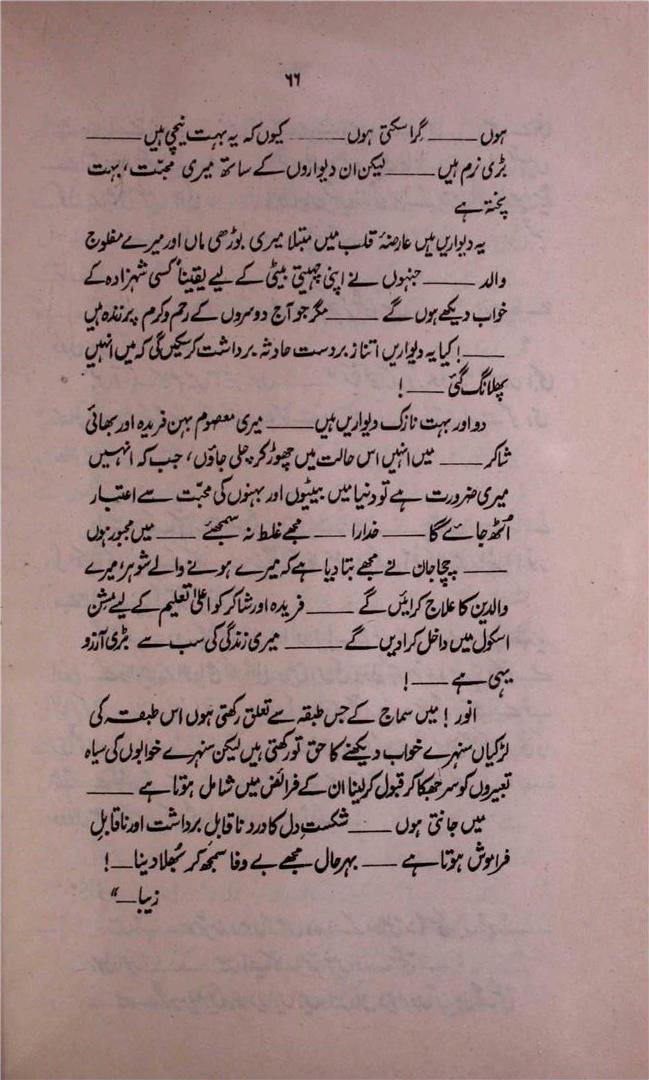 ۶۶
ہوں ـــــ گرا سکتی ہوں ـــــ کیوں کہ یہ بہت نیچی ہیں ـــــ
بڑی نرم ہیں ـــــ لیکن ان دیواروں کے ساتھ میری محبّت، بہت
پختہ ہے
یہ دیواریں ہیں عارضۂ قلب میں مبتلا میری بوڑھی ماں اور میرے مفلوج
والد ـــــ جنہوں نے اپنی چہیتی بیٹی کے لیے یقیناً کسی شہزادہ کے
خواب دیکھے ہوں گے ـــــ مگر جو آج دوسروں کے رحم و کرم پر زندہ ہیں
ـــــ! کیا یہ دیواریں اتنا زبردست حادثہ برداشت کر سکیں گی کہ میں انہیں
پھلانگ گئی ـــــ!
دو اور بہت نازک دیواریں ہیں ـــــ میری معصوم بہن فریدہ اور بھائی
شاکر ـــــ میں انہیں اس حالت میں چھوڑ کر چلی جاؤں، جب کہ انہیں
میری ضرورت ہے تو دنیا میں بیٹیوں اور بہنوں کی محبت سے اعتبار
اُٹھ جائے گا ـــــ خدارا ـــــ مجھے غلط نہ سمجھئے ـــــ میں مجبور ہوں
ـــــ چچا جان نے مجھے بتا دیا ہے کہ میرے ہونے والے شوہر، میرے
والدین کا علاج کرائیں گے ـــــ فریدہ اور شاکر کو اعلیٰ تعلیم کے لیے مشن
اسکول میں داخل کرا دیں گے ـــــ میری زندگی کی سب سے بڑی آرزو
یہی ہے ـــــ!
انور! میں سماج کے جس طبقہ سے تعلق رکھتی ہوں اس طبقہ کی
لڑکیاں سنہرے خواب دیکھنے کا حق تو رکھتی ہیں لیکن سنہرے خوابوں کی سیاہ
تعبیروں کو سر جھکا کر قبول کر لینا ان کے فرائض میں شامل ہوتا ہے ـــــ
میں جانتی ہوں ـــــ شکستِ دل کا درد ناقابلِ برداشت اور ناقابلِ
فراموش ہوتا ہے ـــــ بہرحال مجھے بے وفا سمجھ کر بُھلا دینا ـــــ!
زیبا ـــ"